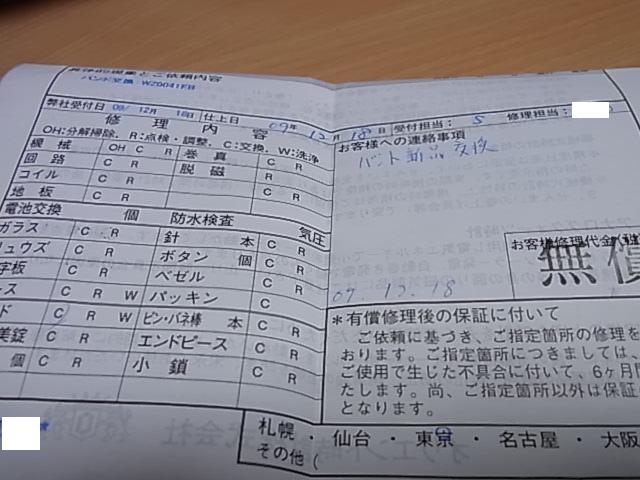 具体的現象とご依頼内容
バンド交換 WZ0041FB
弊社受付日 09/ 12月 18日 仕上日 09年 12月 18日 受付担当: S 修理担当:
修理内容
OH:分解掃除、R:点検・調整、C:交換、W:洗浄
機械 OH C R 巻真 C R
回路 C R 脱磁 C R
コイル C R C R
地板 C R
電池交換 個 防水検査 気圧
ガラス C R 針 本 C R
ュウズ C R ボタン 個 C R
字板 C R ベゼル C R
ース C R W パッキン C
ド C R W ピン・バネ棒 本 C R
美錠 C R W エンドピース C R
個 C R 小鎖 C R
お客様への連絡事項
バンド新品交換
お客様修理代金
無償
09.12.18
*有償修理後の保証に付いて
ご依頼に基づき、ご指定箇所の修理を
おります。ご指定箇所につきましては、
ご使用で生じた不具合に付いて、6ヶ月間
たします。尚、ご指定箇所以外は保証
となります。
札幌・仙台・東京・名古屋・大阪
その他(